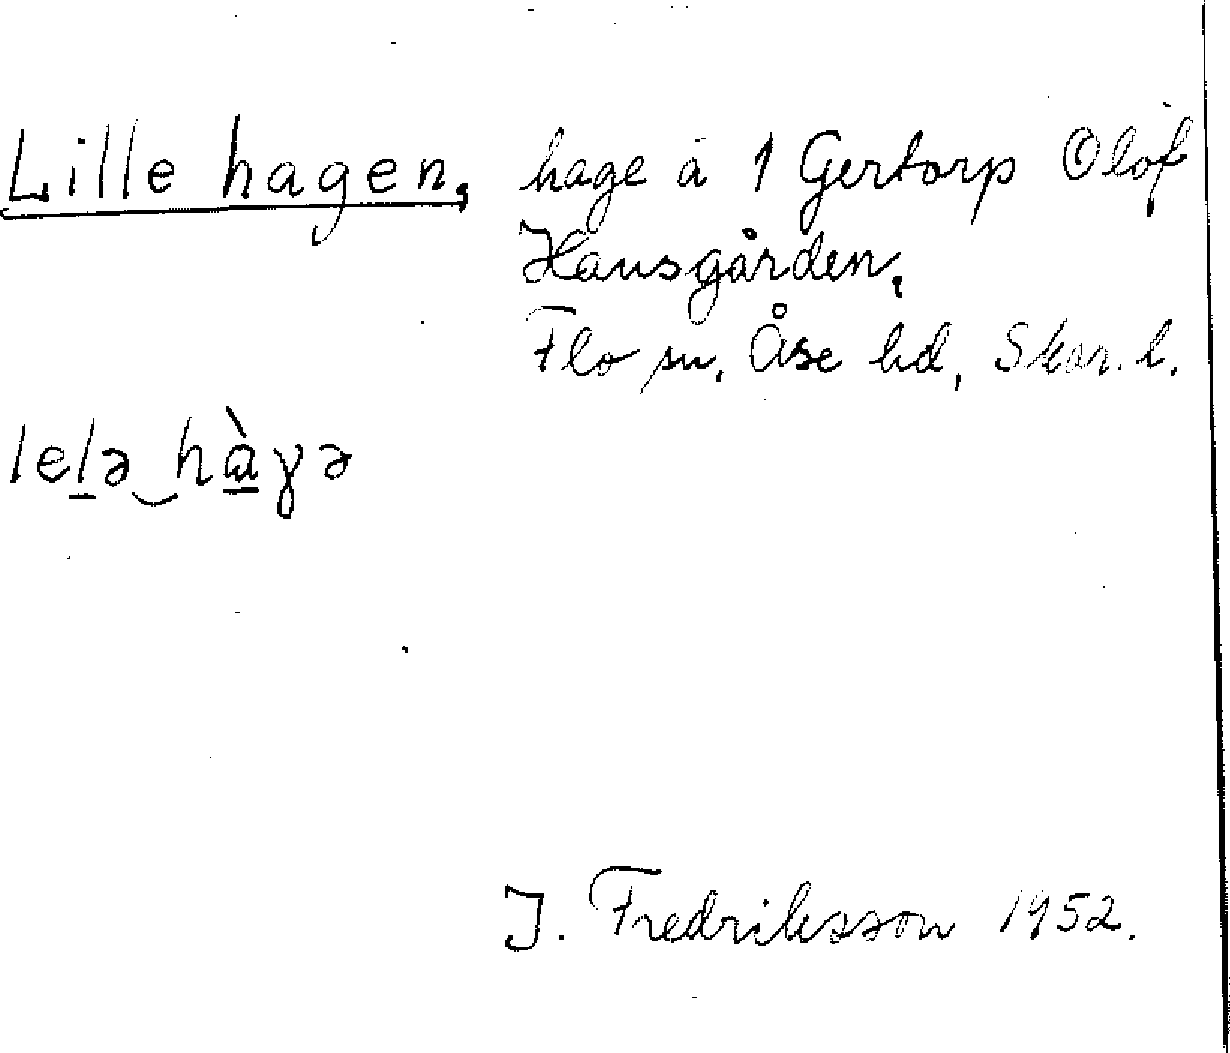 Lille hagen, hage å 1 Gertorp Olof
Hansgården,
Flo sn. Åse hd, Skar. l.
lel̲ə‿hà̲ɣə
J. Fredriksson 1952.